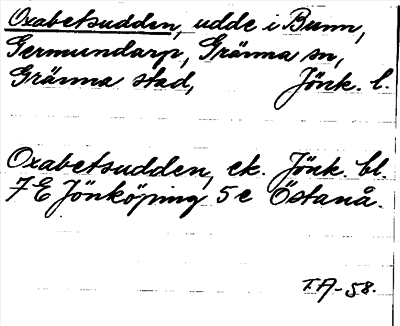 Oxabetsudden, udde i Bunn,
Germundarp, Gränna sn,
Gränna stad, Jönk. l.
Oxabetsudden, ek. Jönk. bl.
7 E Jönköping 5 e Östanå.
T.A-58.